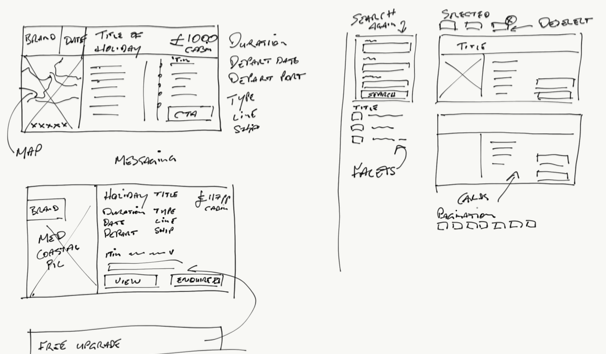 BRAND DATE TITLE OF HOLIDAY £1000
CABIN
ITIN
CTA
xxxxx
MAP
DURATION
DEPART DATE
DEPART PORT
TYPE
LINE
SHIP
MESSAGING
BRAND
MED
COASTAL
PIC
HOLIDAY TITLE
DURATION TYPE
DATE LINE
DEPART SHIP
CABIN
ITIN
VIEW
FREE UPGRADE
SEARCH
AGAIN
SEARCH
TITLE
FACETS
SELECTED
DESELECT
TITLE
CARDS
PAGINATION